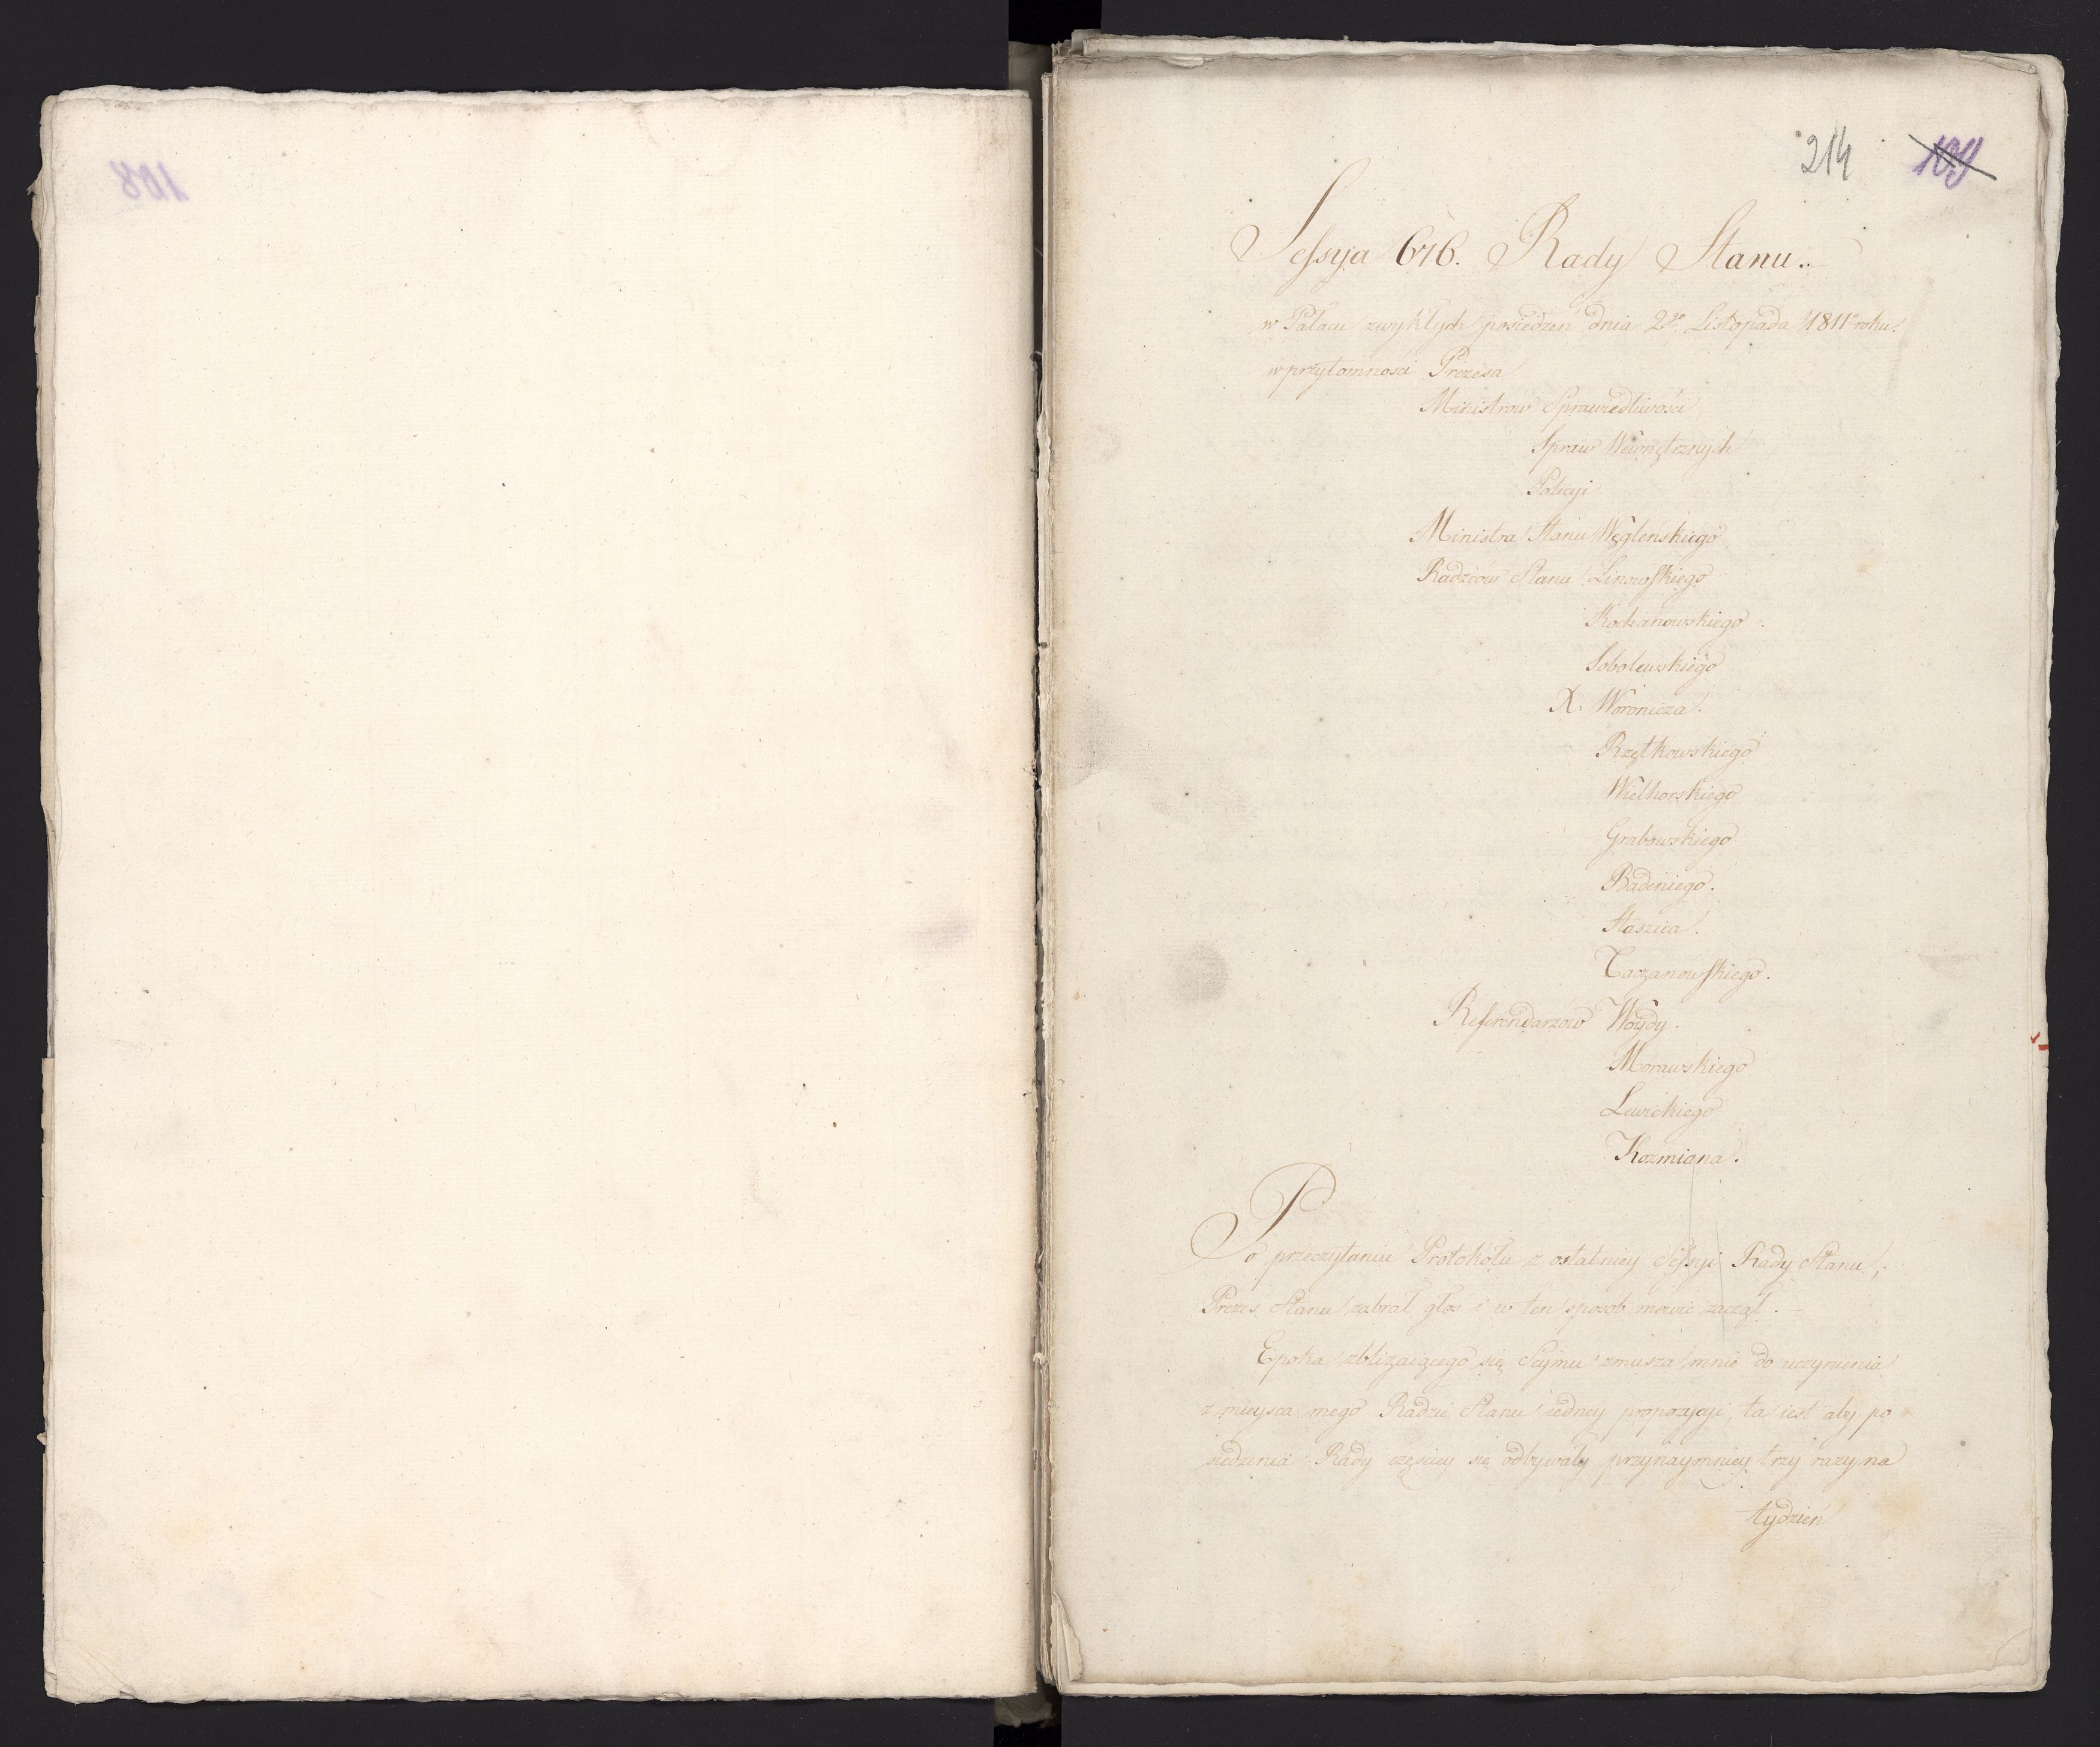 108
214 109
Sessyja 676. Rady Stanu.
w Pałacu zwykłych posiedzeń dnia 2go Listopada 1811o roku.
w przytomności Prezesa
Ministrow Sprawiedliwości
Spraw Wewnętrznych
Policyi
Ministra Stanu Węgleńskiego
Radzców Stanu Linowskiego
Kochanowskiego
Sobolewskiego
X. Woronicza.
Rzętkowskiego
Wielhorskiego
Grabowskiego
Badeniego.
Staszica.
Taczanowskiego.
Referendarzów Woydy.
Morawskiego
Lewickiego
Kozmiana.
Po przeczytaniu Protokołu z ostatniey Sessyi Rady Stanu,
Prezes Stanu zabrał głos i w ten sposob mowić zaczął.
Epoka zbliżaiącego się Seymu zmusza mnie do uczynienia
z mieysca mego Radzie Stanu iedney propozycyi, ta iest aby po
siedzenia Rady częściey się odbywały przynaymniey trzy razy na
tydzień